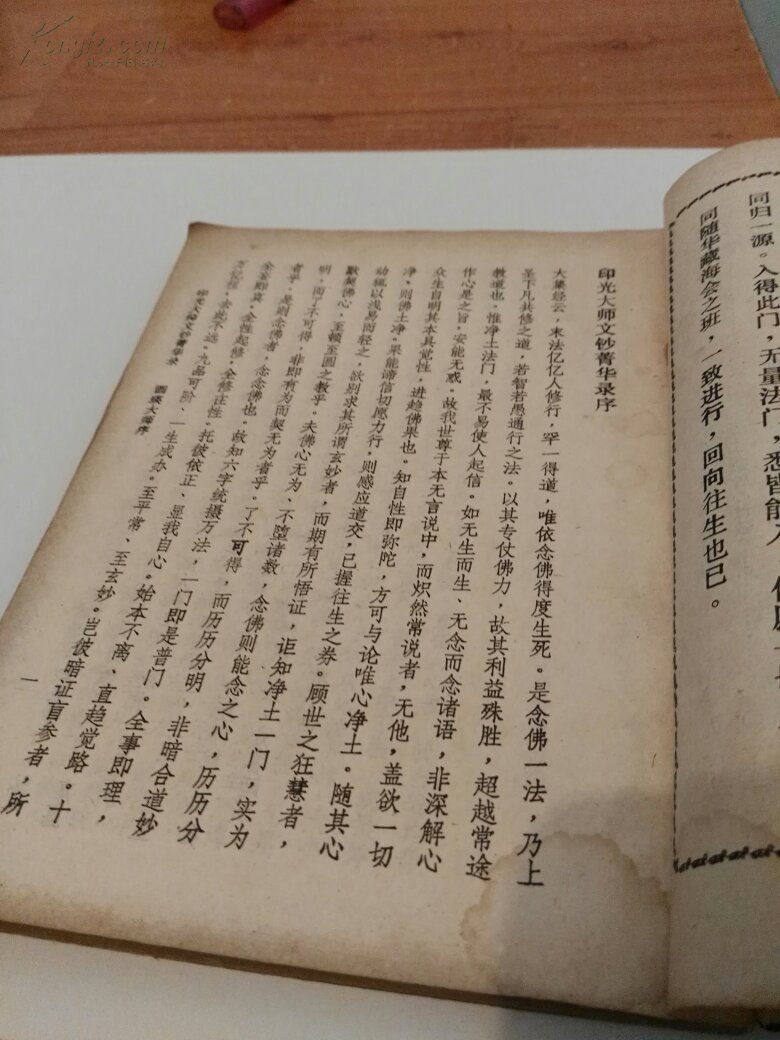 同归一源。入得此门，无量法门，悉皆能入。
同随华藏海会之班，一致进行，回向往生也已。
印光大师文钞菁华录序
大集经云，末法亿亿人修行，罕一得道，唯依念佛得度生死。是念佛一法，乃上
圣下凡共修之道，若智若愚通行之法。以其专仗佛力，故其利益殊胜，超越常途
教道也。惟净土法门，最不易使人起信。如无生而生、无念而念诸语，非深解心
作心是之旨，安能无惑。故我世尊于本无言说中，而炽然常说者，无他，盖欲一切
众生自明其本具觉性，进趋佛果也。知自性即弥陀，方可与论唯心净土。随其心
净、则佛土净。果能谛信切愿力行，则感应道交，已握往生之券。顾世之狂慧者，
动辄以浅易而轻之，欲别求其所谓玄妙者，而期有所悟证，讵知净土一门，实为
默契佛心，至顿至圆之教乎。夫佛心无为、不堕诸数，念佛则能念之心，历历分
明，而了不可得，非即有为而契无为者乎。了不可得，而历历分明，非暗合道妙
者乎。是则念佛者，念念佛也。故知六字统摄万法，一门即是普门。全事即理，
全妄即真。全性起修，全修在性。托彼依正、显我自心。始本不离、直趋觉路。十
万亿程，去此不远。九品可阶、一生成办。至平常、至玄妙。岂彼暗证盲参者，所
印光大师文钞菁华录
圆瑛大师序
一